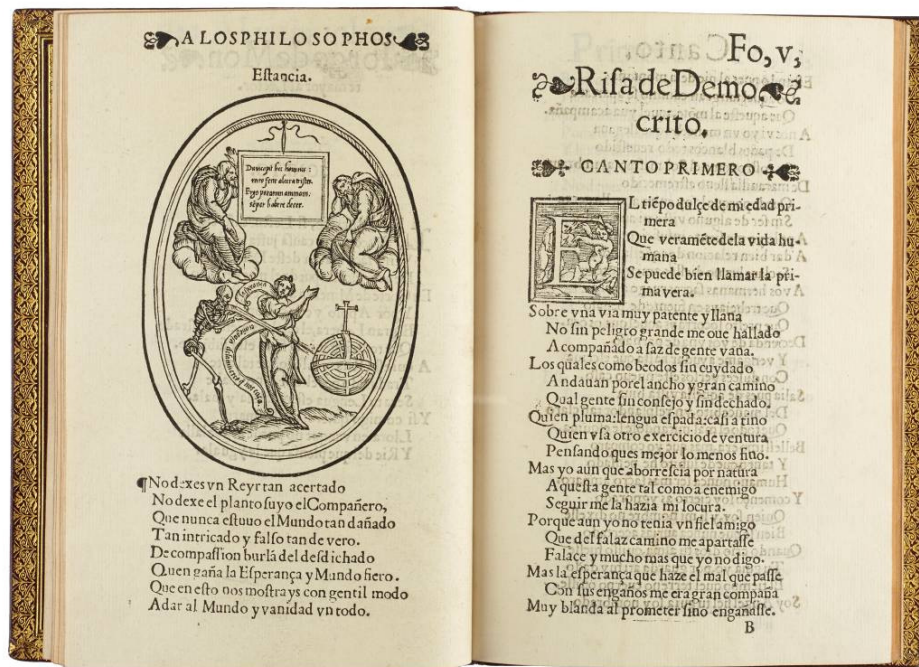 A LOS PHILOSOPHOS
Estancia.
Decepit hic homines :
¶ No dexes vn Reyr tan acertado
No dexe el planto suyo el Compañero,
Que nunca estuuo el Mundo tan dañado
Tan intricado y falso tan de vero.
De compassion burla del desdichado
Quen gaña la Esperança y Mundo fiero.
Que en esto nos mostrays con gentil modo
A dar al Mundo y vanidad vn todo.
Fo, v,
Risa de Demo
crito.
CANTO PRIMERO
EL tiẽpo dulçe de mi edad pri-
mera
Que veramẽte de la vida hu-
mana
Se puede bien llamar la pri-
ma vera.
Sobre vna via muy patente y llana
No sin peligro grande me oue hallado
Acompañado a saz de gente vana.
Los quales como beodos sin cuydado
Andauan por el ancho y gran camino
Qual gente sin consejo y sin dechado.
Quien pluma: lengua espada: casi a rino
Quien vsa otro exercicio de ventura
Pensando ques mejor lo menos fino.
Mas yo aun que aborrescia por natura
A questa gente tal como a enemigo
Seguir me la hazia mi locura.
Porque aun yo no tenia vn fiel amigo
Que del falaz camino me apartasse
Falace y mucho mas que yo no digo.
Mas la esperança que haze el mal que passe
Con sus engaños me era gran compaña
Muy blanda al prometer sino engañasse.
B